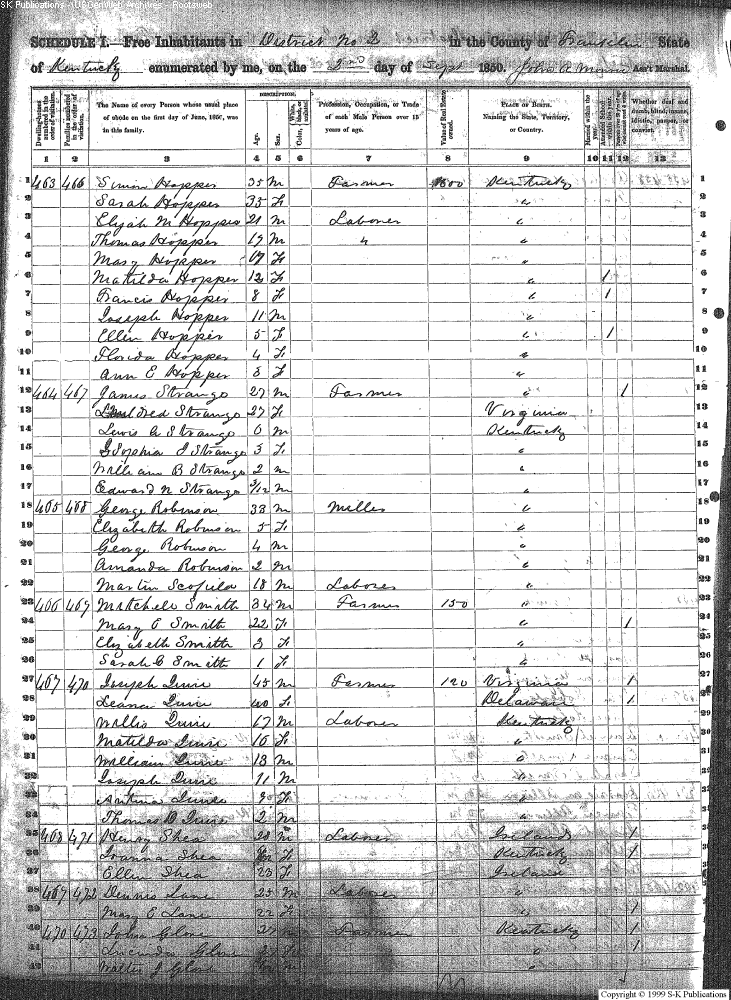 SK Publications - AUSGenWeb Archives - Rootsweb
SCHEDULE I.—Free Inhabitants in District No 2 in the County of Franklin State
of Kentucky enumerated by me, on the 2nd day of Sept 1850. John A Monroe Ass't Marshal.
Dwelling-houses numbered in the order of visitation.
Families numbered in the order of visitation.
The Name of every Person whose usual place of abode on the first day of June, 1850, was in this family.
DESCRIPTION.
Age.
Sex.
Color, White, black, or mulatto.
Profession, Occupation, or Trade of each Male Person over 15 years of age.
Value of Real Estate owned.
PLACE OF BIRTH. Naming the State, Territory, or Country.
Married within the year.
Attended School within the year.
Whether deaf and dumb, blind, insane, idiotic, pauper, or convict.
1 2 3 4 5 6 7 8 9 10 11 12 13
1 463 466 Simon Hopper 35 M Farmer Kentucky 1
2 Sarah Hopper 35 F " 2
3 Elijah M Hopper 21 M Laborer " 3
4 Thomas Hopper 19 M " " 4
5 Mary Hopper F " 5
6 Matilda Hopper 12 F " 1 6
7 Francis Hopper 8 F " 1 7
8 Joseph Hopper 11 M " 8
9 Ellen Hopper 5 F " 1 9
10 Florida Hopper 4 F " 10
11 Ann E Hopper F " 11
12 464 467 James Strango 27 M Farmer " 1 12
13 Strango 27 F Virginia 13
14 Lewis A Strango 6 M Kentucky 14
15 Sophia J Strango 3 F " 15
16 William B Strango 2 M " 16
17 Edward N Strango M " 17
18 465 468 George Robinson 33 M Miller " 18
19 Elizabeth Robinson 5 F " 19
20 George Robinson 4 M " 20
21 Amanda Robinson 2 M " 21
22 Martin Scofield 18 M Laborer " 22
23 466 469 Mitchell Smith 34 M Farmer 150 " 23
24 Mary E Smith 22 F " 1 24
25 Elizabeth Smith 3 F " 25
26 Sarah C Smith 1 F " 26
27 467 470 Joseph Quire 45 M Farmer 120 Virginia 1 27
28 Leana Quire 40 F Delaware 1 28
29 Willis Quire 17 M Laborer Kentucky 29
30 Matilda Quire 16 F " 30
31 William Quire 13 M " 31
32 Joseph Quire 11 M " 32
33 Quire 9 F " 33
34 Thomas D Quire 2 M " 34
35 468 471 Henry Shea 28 M Laborer Ireland 1 35
36 Shea F Kentucky 1 36
37 Ellen Shea 23 F Ireland 37
38 469 472 Dennis Lane 25 M Laborer " 38
39 Mary E Lane 22 F " 1 39
40 470 473 Glove 27 M Farmer Kentucky 1 40
41 Lucinda Glove F " 1 41
42 Walter J Glove M " 42
Copyright © 1999 S-K Publications